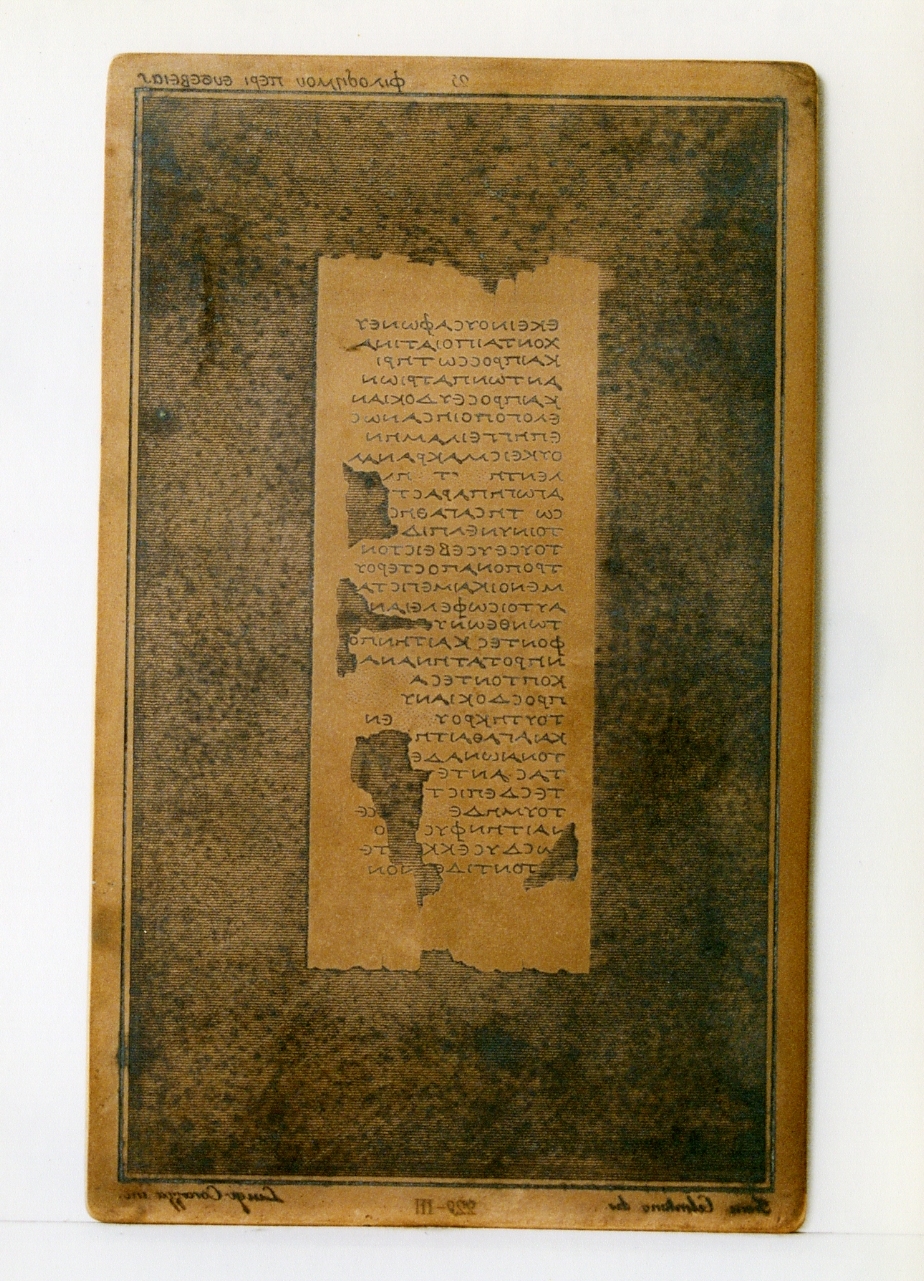 φιλοδημου περι ευσεβειας
ΕΚΕΙΝΟΥCΑΦΩΝΕΥ
ΧΟΝΤΑΙΠΟΙΑΤΙΝΑ
ΚΑΙΠΡΟCCΩΤΗΡΙ
ΑΝΤΩΝΠΑΤΡΙΩΝ
ΚΑΠΡΟCΕΥΔΟΚΙΑΝ
ΕΛΟΓΟΠΟΙΗCΑΝΩC
ΕΠΗΓΓΕΙΛΑΜΗΝ
ΟΥΚΕΙCΜΑΚΡΑΝΑΛ
ΛΕΝΤΗ Τ
ΑΓΩΓΗΠΑΡΑCΤ
CΩ ΤΗCΑΓΑΘΗC
ΤΟΙΝΥΝΕΛΠΙΔ
ΤΟΥCΕΥCΕΒΕΙCΤΟΝ
ΤΡΟΠΟΝΑΠΟCΤΕΡΟΥ
ΜΕΝΟΙΚΑΙΜΕΠΙCΤΑ
ΑΥΤΟΙCΩΦΕΛΕΙΑΝ
ΤΩΝΘΕΩΝΥ
ΦΟΝΤΕC ΚΑΙΤΗΝΠΟ
ΝΠΡΟΤΑΤΗΝΑΝΑ
ΚΟΠΤΟΝΤΕCΑ
ΠΡΟCΔΟΚΙΑΝΥ
ΤΟΥΤΗΚΡΟΥ ΕΝ
ΚΑΙΑΓΑΘΑΙΤΗ
ΤΟΝΑΙΩΝΑΔΕ
ΤΑC ΑΝΤΕ
ΤΕCΔΕΠΙCΤ
ΤΟΥΜΗΔΕ CΕ
ΝΑΙΤΗΝΦΥC Ο
ΩCΔΥCΕΚΚ ΤΕ
ΤΟΝΤΙΔΕ ΝΟΝ
Celentano dis. 229-III Luigi Corazza inc.